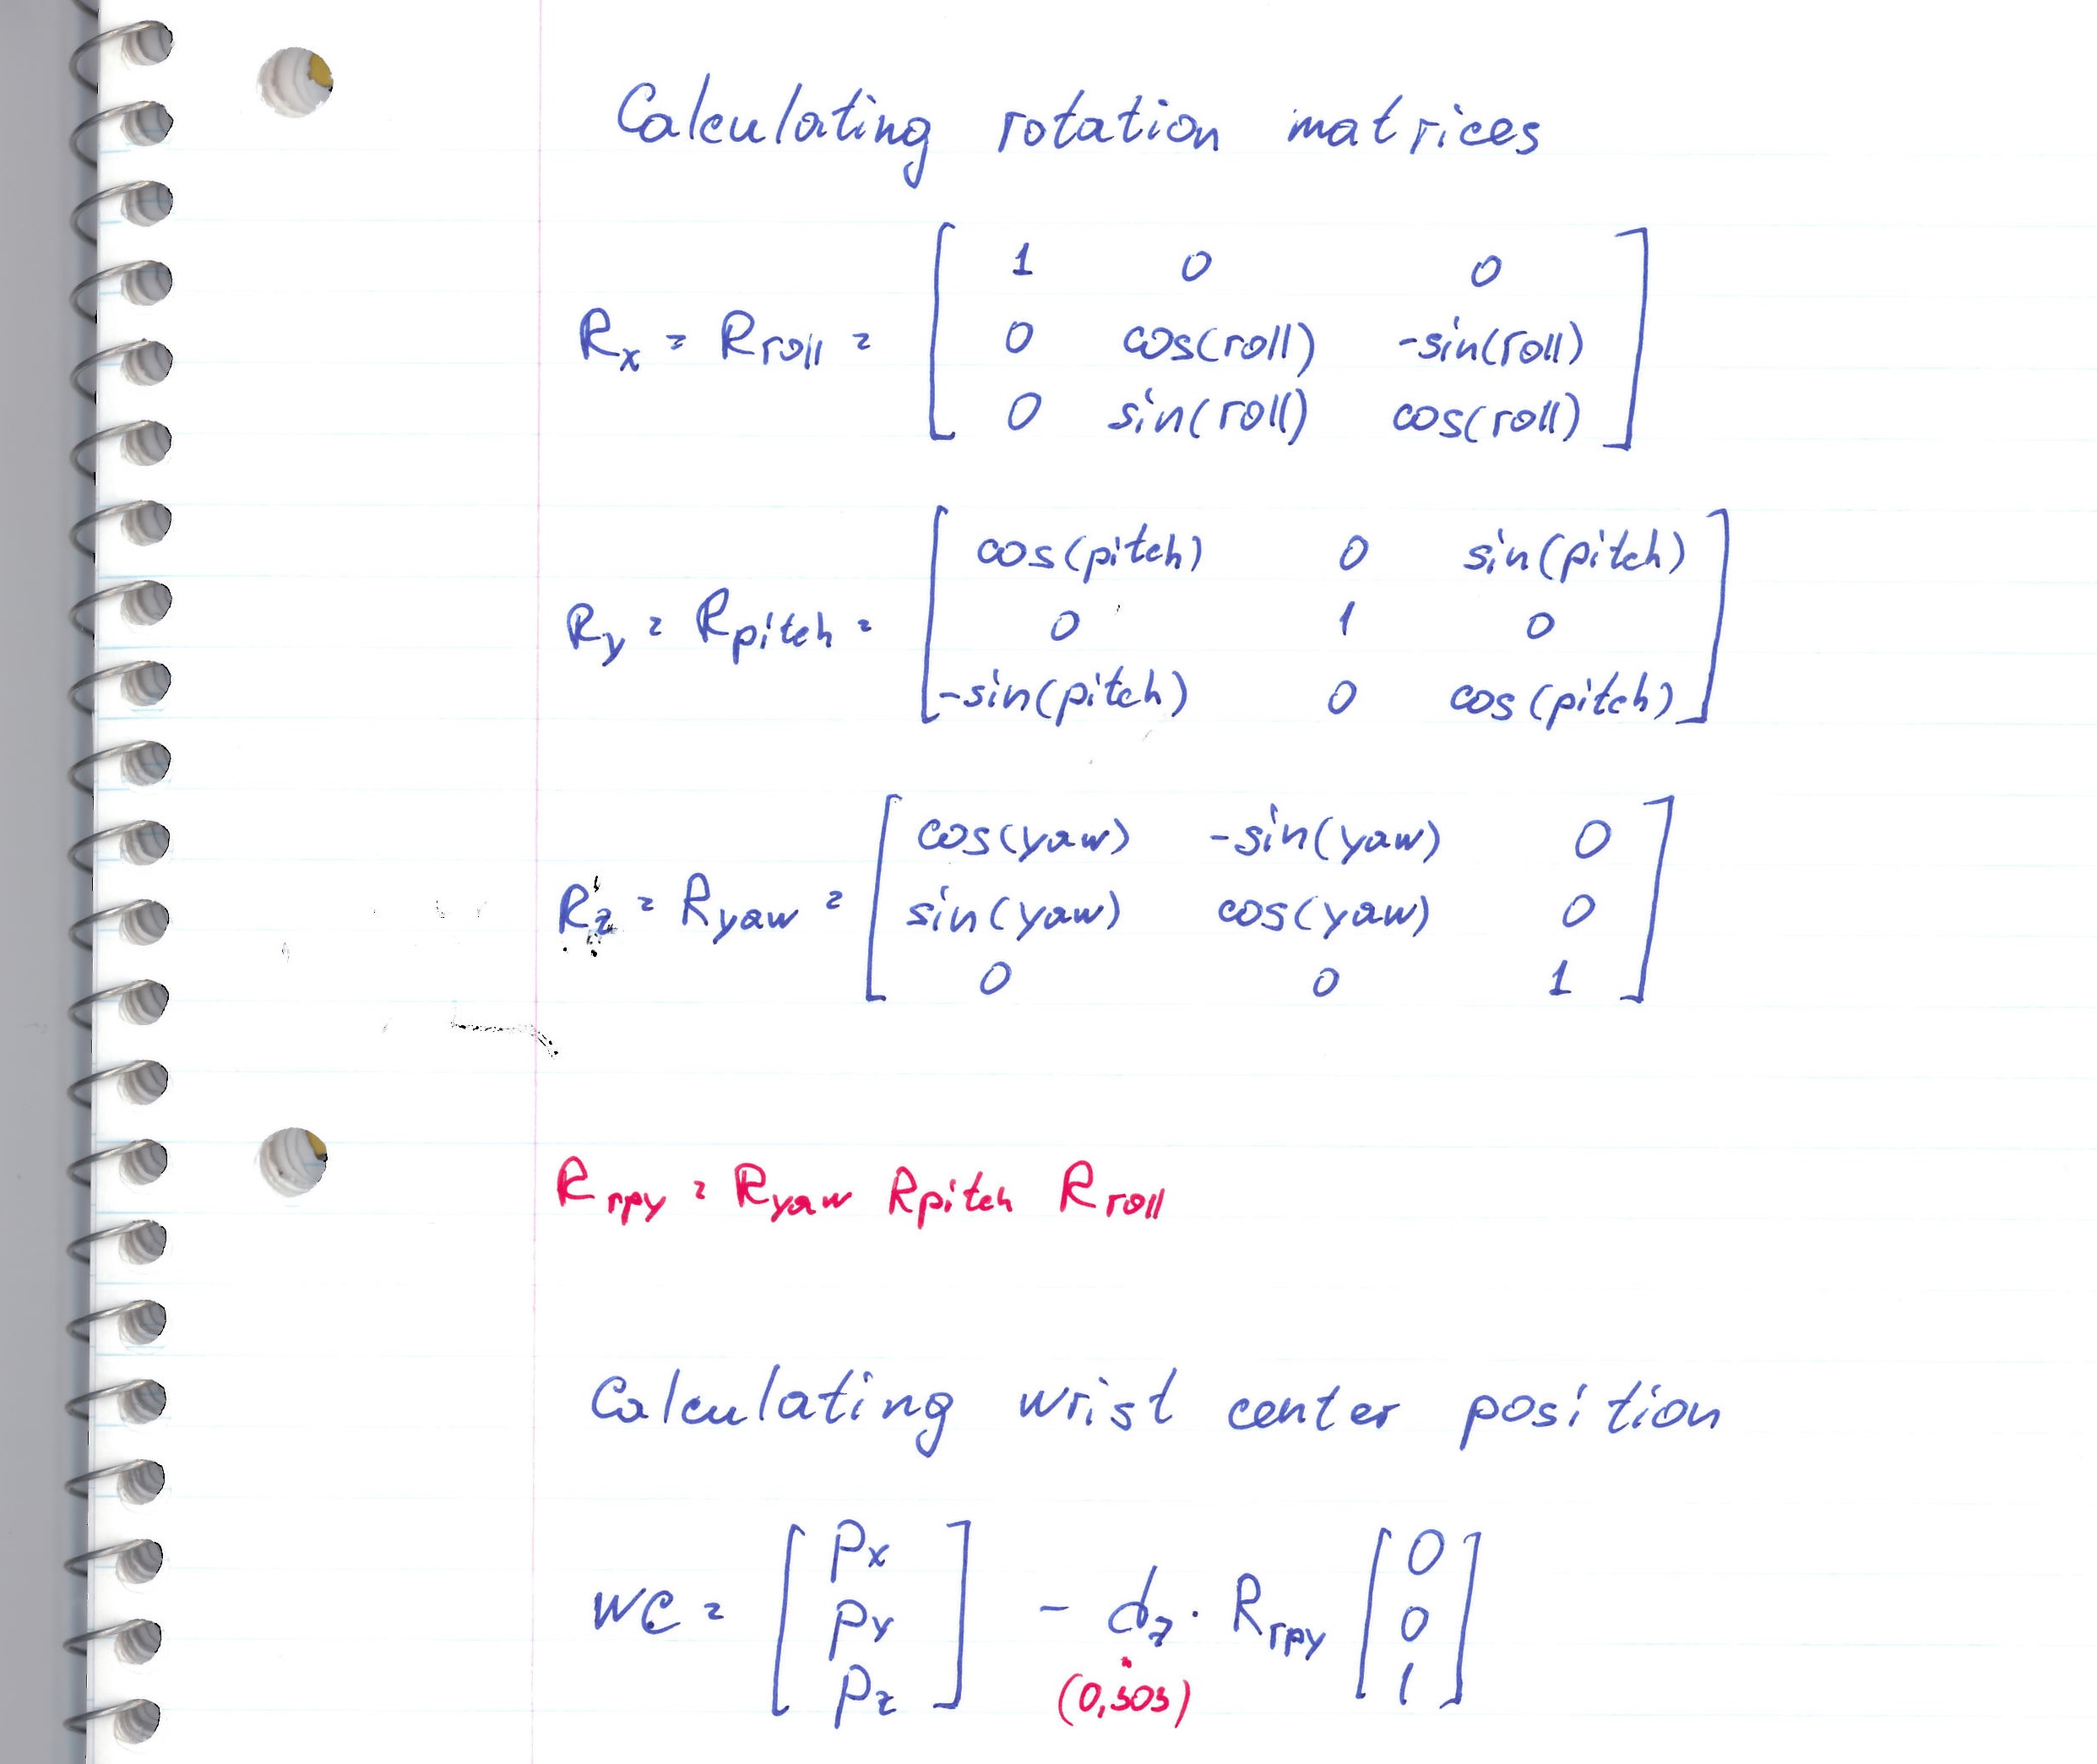 Calculating rotation matrices
1 0 0
Rx = Rroll = 0 cos(roll) -sin(roll)
0 sin(roll) cos(roll)
cos(pitch) 0 sin(pitch)
Ry = Rpitch = 0 1 0
-sin(pitch) 0 cos(pitch)
cos(yaw) -sin(yaw) 0
Rz = Ryaw = sin(yaw) cos(yaw) 0
0 0 1
Rrpy = Ryaw Rpitch Rroll
Calculating wrist center position
Px 0
WC = Py - d7 · Rrpy 0
Pz 1
(0,303)